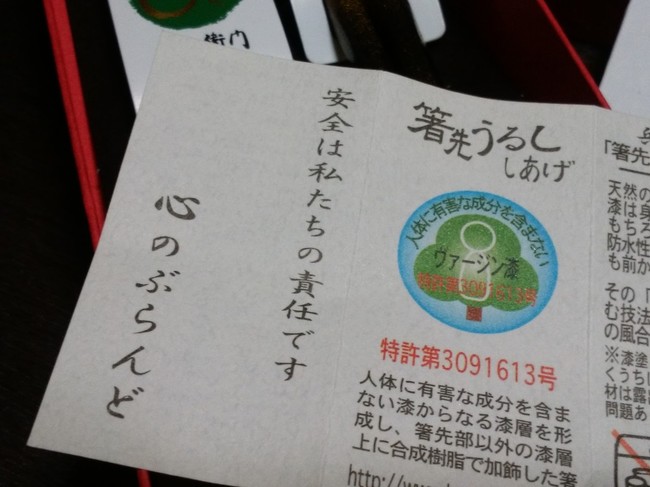 衛門
安全は私たちの責任です
心のぶらんど
箸先うるし
しあげ
人体に有害な成分を含まない
ヴァージン漆
特許第3091613号
特許第3091613号
人体に有害な成分を含ま
ない漆からなる漆層を形
成し、箸先部以外の漆層
上に合成樹脂で加飾した箸
http://www
「箸先
天然の
漆は身
もちろ
防水性
も前か
その「
む技法
の風合
※漆塗
くうちに
材は露
問題あ